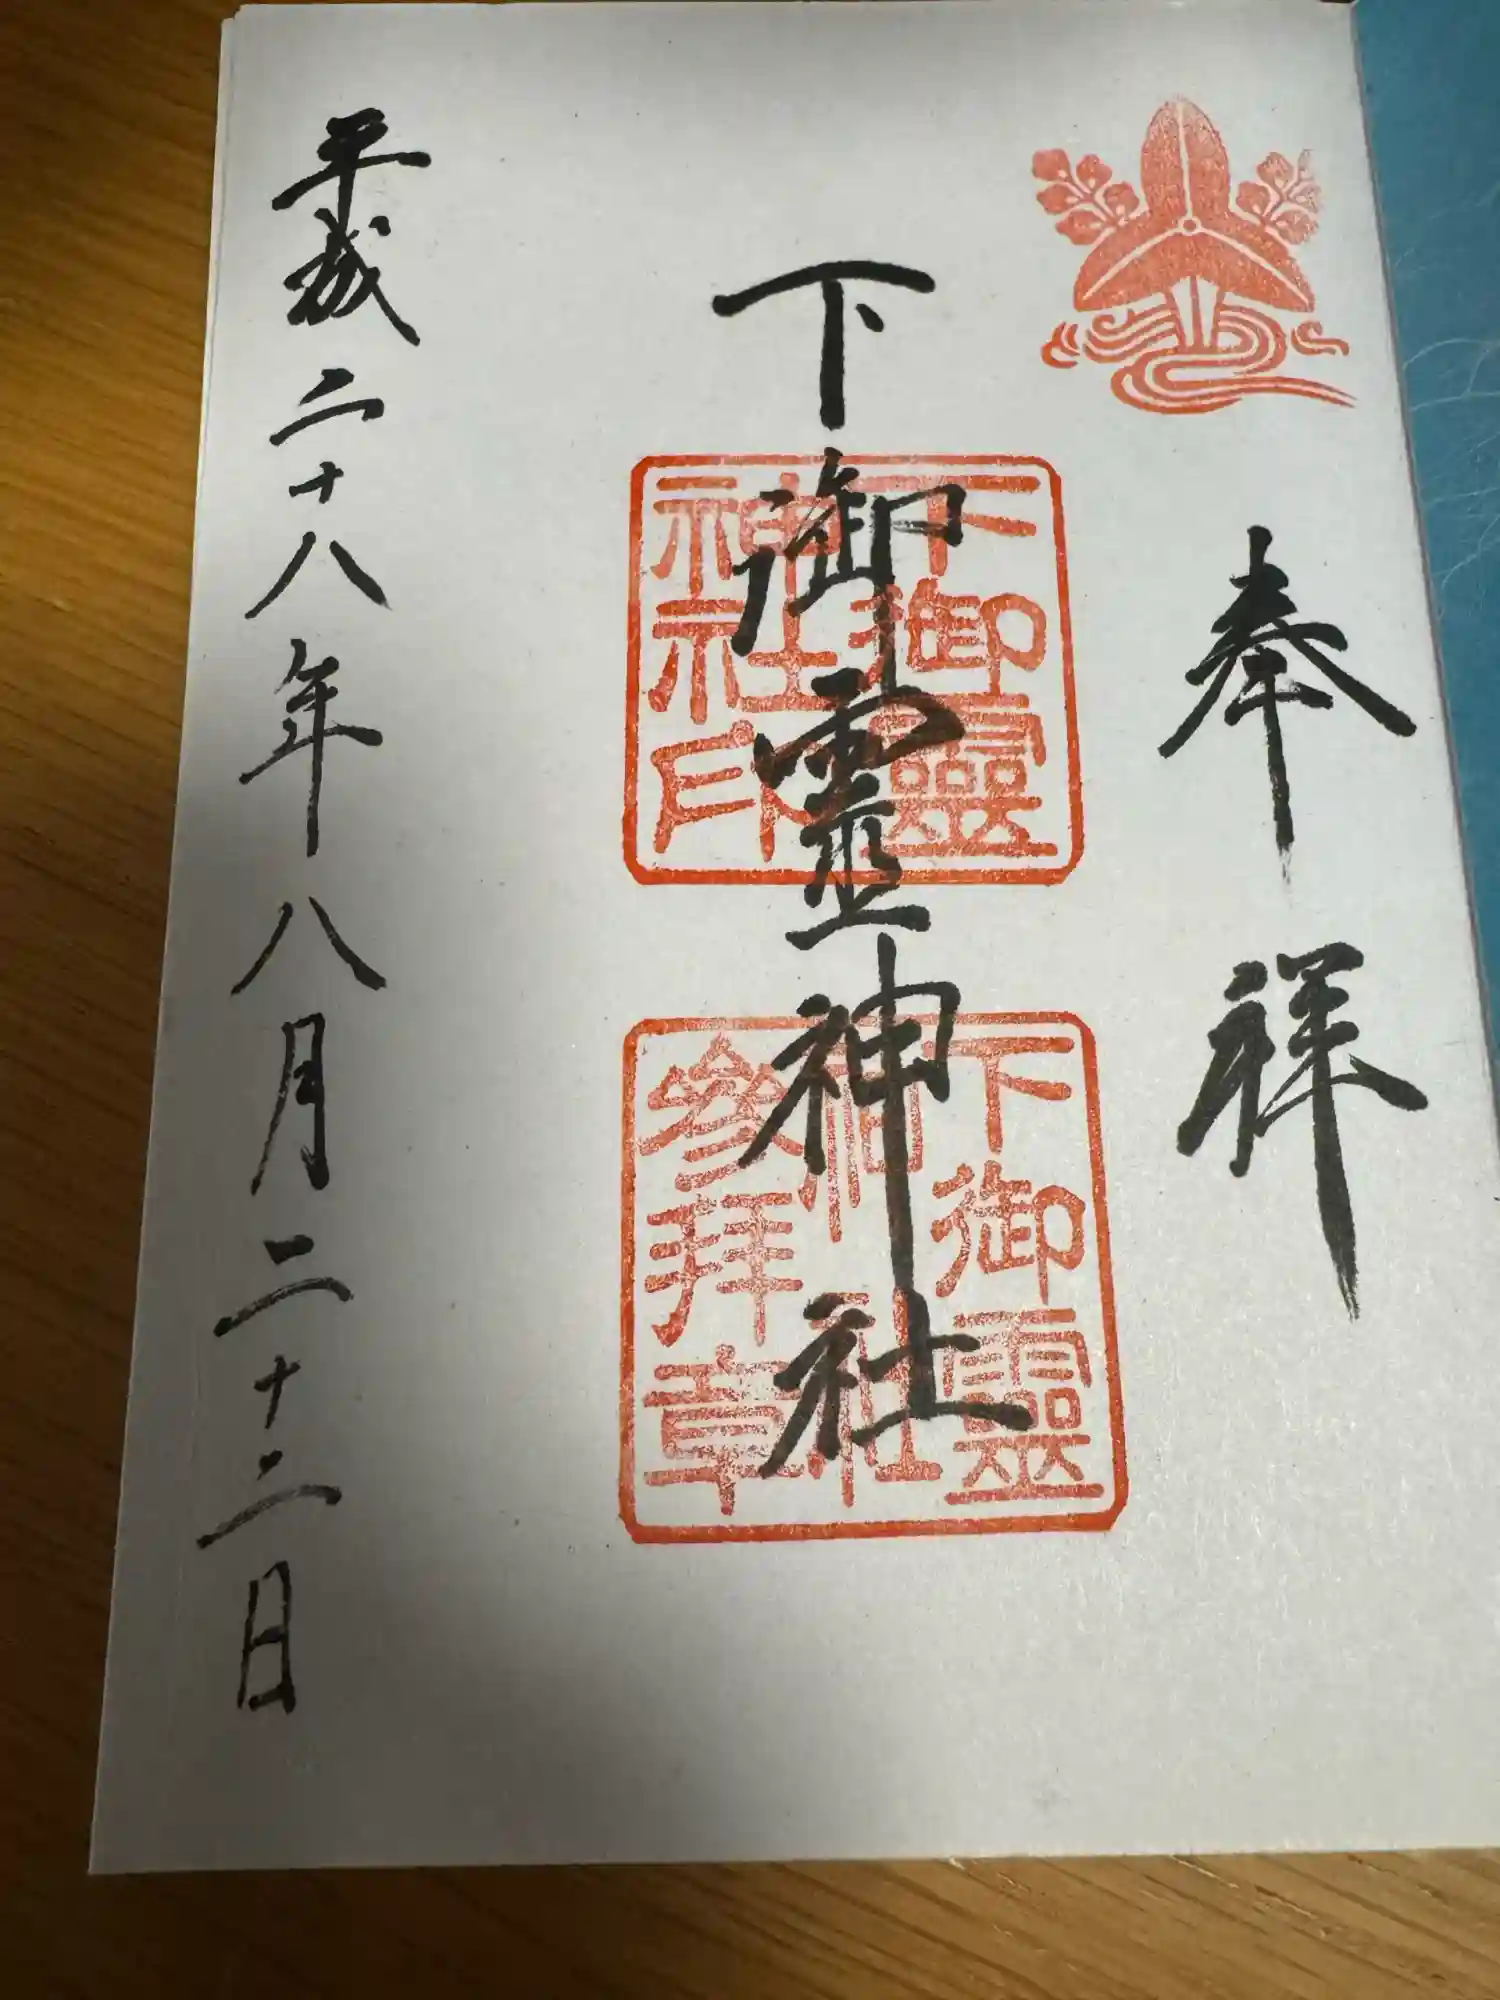 奉拝
下御霊神社
下御靈
神社印
下御靈
神社
參拜章
平成二十八年八月二十二日